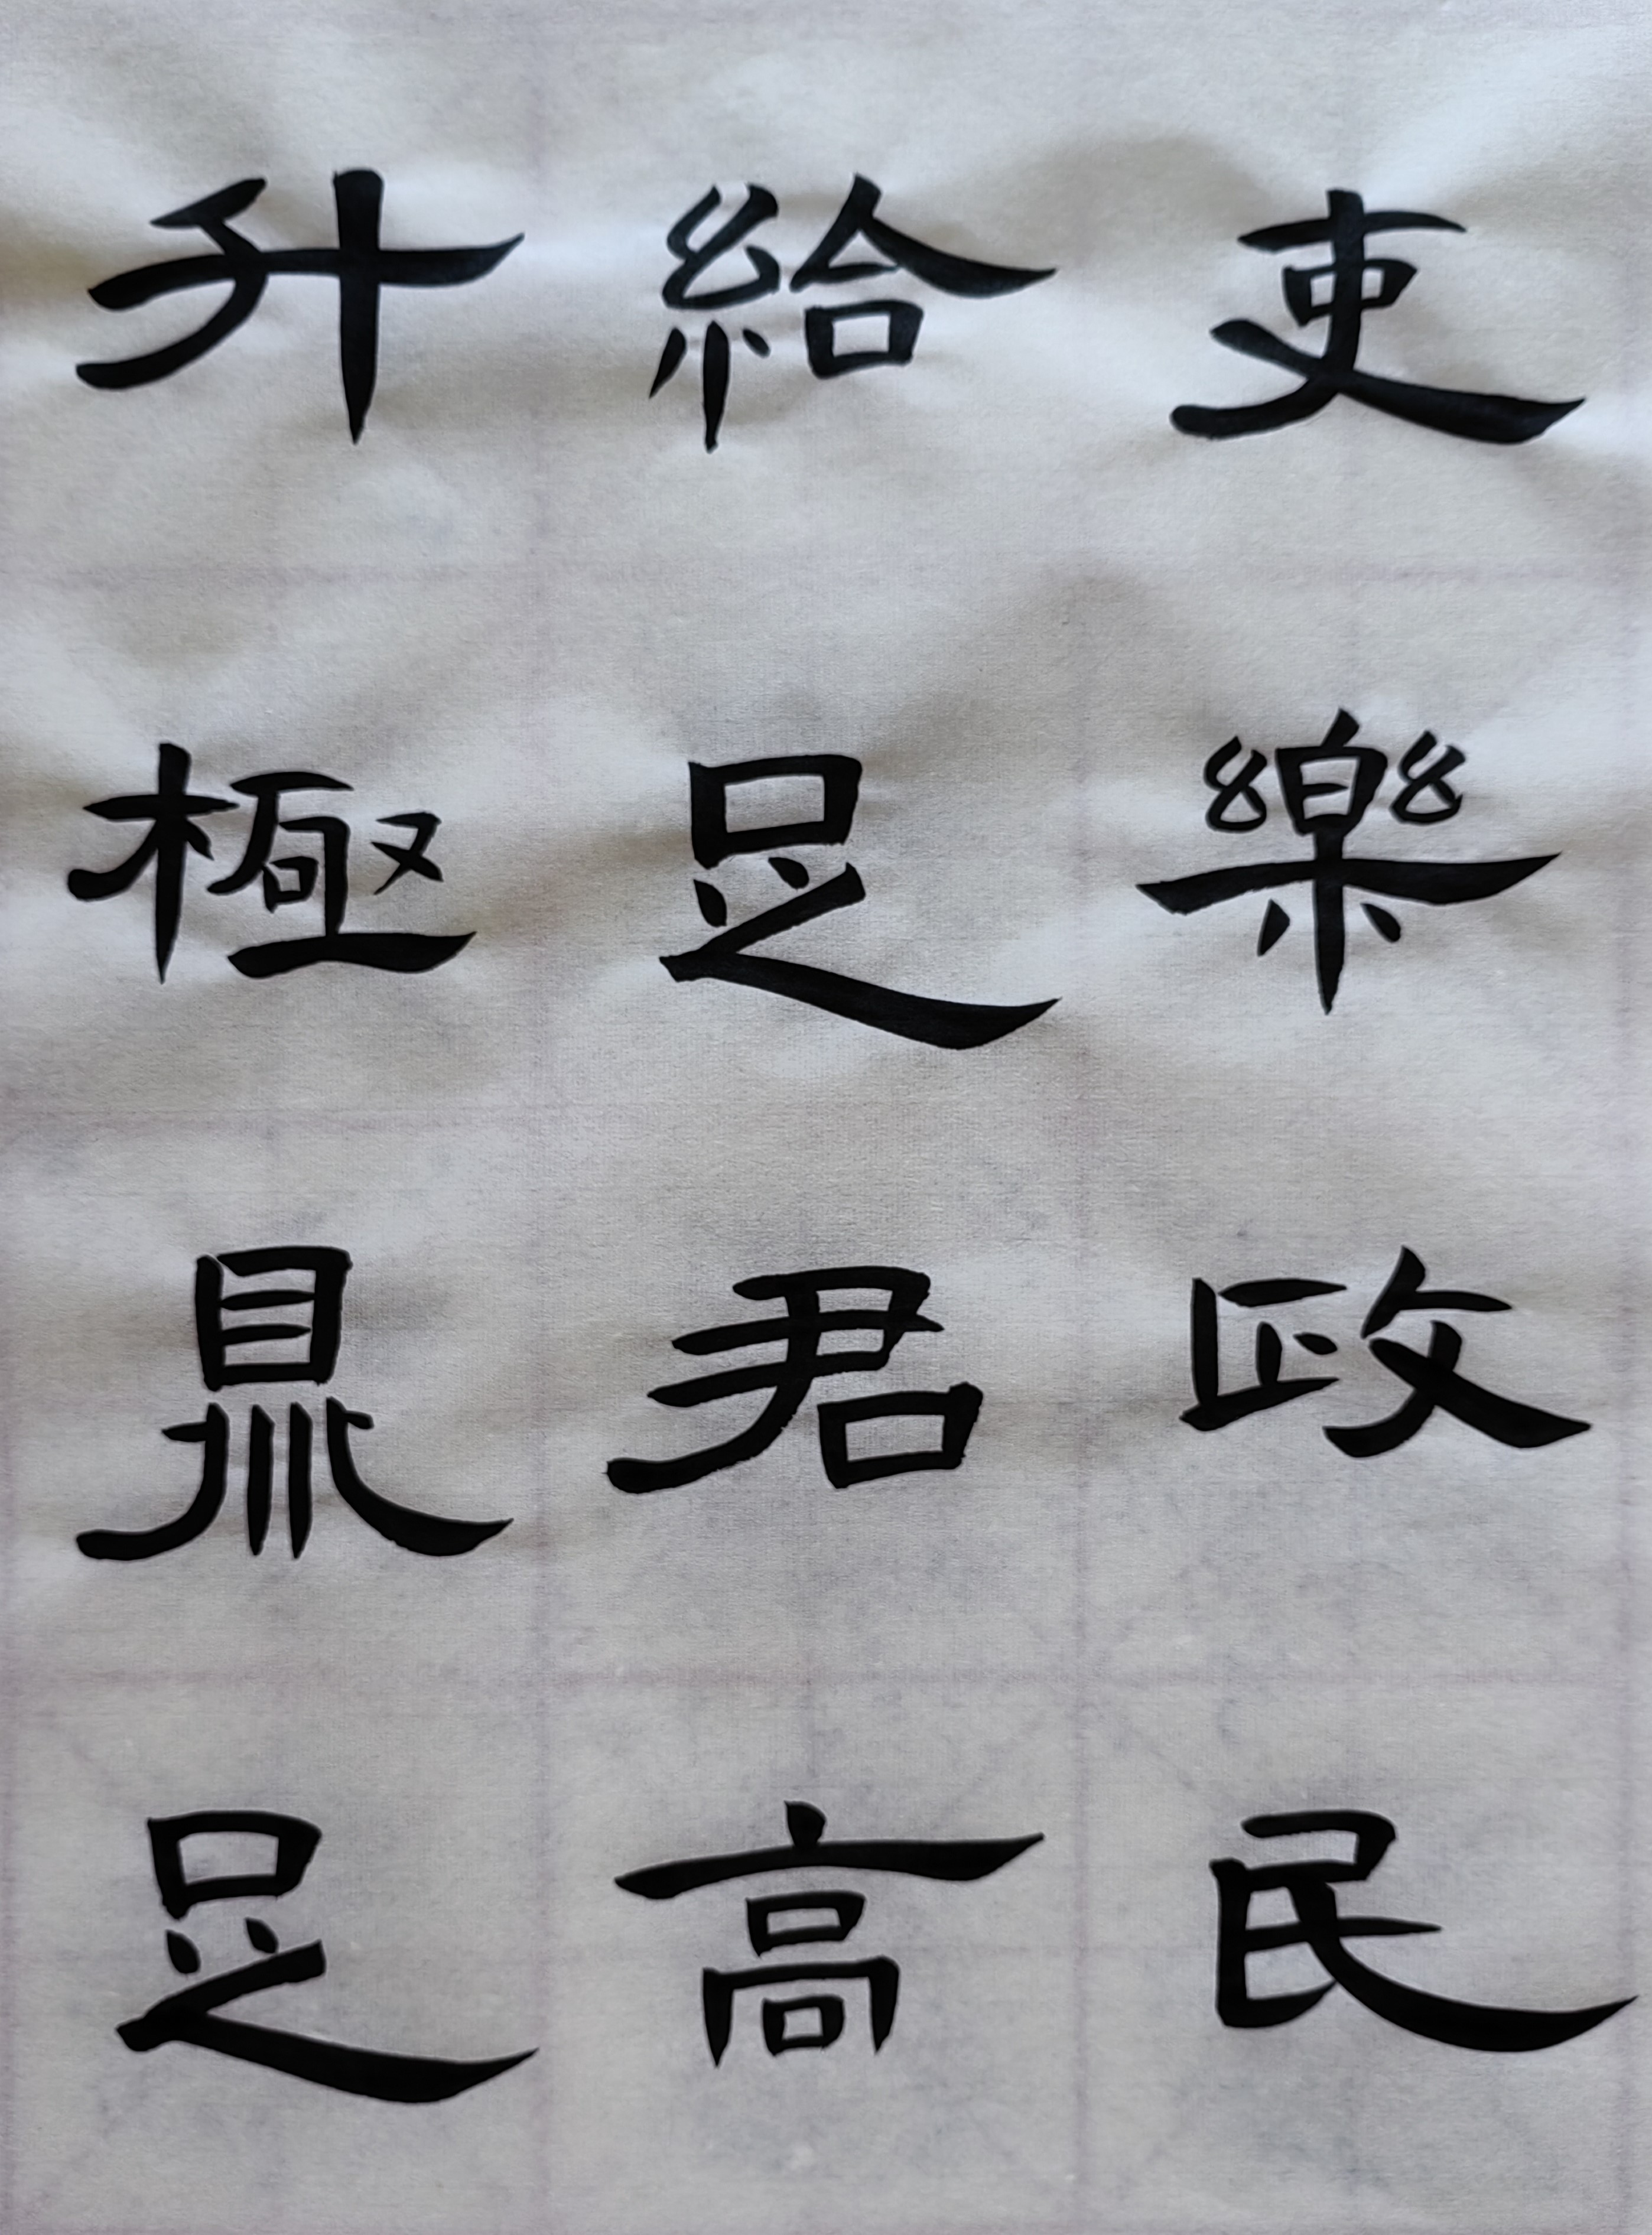 吏樂政民
給足君高
升極鼎足